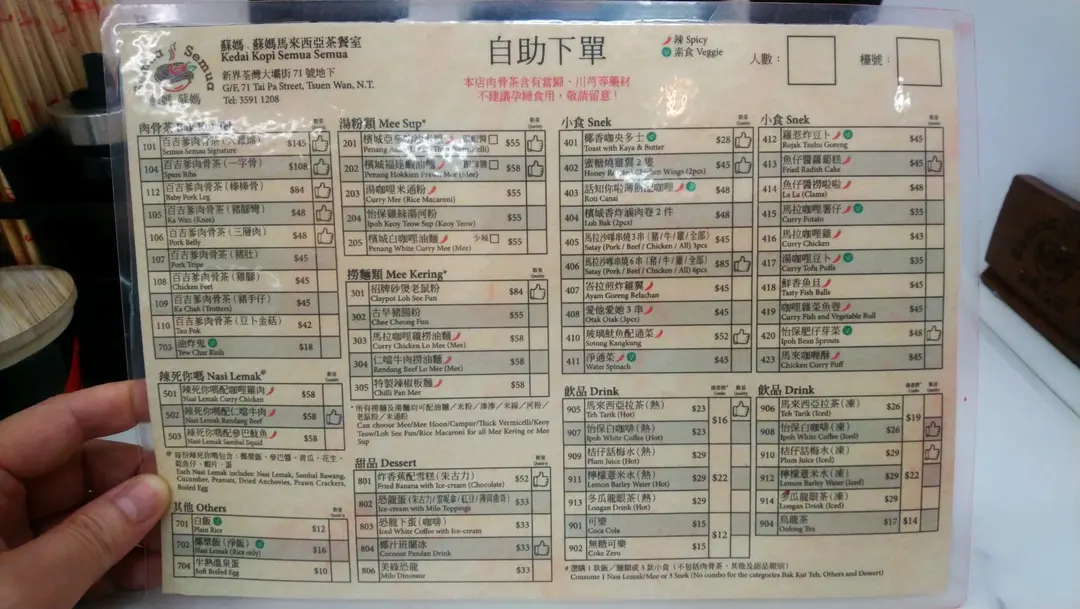 Semua Semua
蘇媽 蘇媽
蘇媽．蘇媽馬來西亞茶餐室
Kedai Kopi Semua Semua
新界荃灣大壩街 71 號地下
G/F, 71 Tai Pa Street, Tsuen Wan, N.T.
Tel: 3591 1208
自助下單
本店肉骨茶含有當歸、川芎等藥材
不建議孕婦食用，敬請留意！
辣 Spicy
素食 Veggie
人數：
檯號：
肉骨茶 Bak Kut Teh
101 百吉爹肉骨茶 $145
Semua Semua Signature
104 百吉爹肉骨茶 (一字骨) $108
Spare Ribs
112 百吉爹肉骨茶 (棒棒骨) $84
Baby Pork Leg
105 百吉爹肉骨茶 (豬腳彎) $48
Ka Wan (Knee)
106 百吉爹肉骨茶 (三層肉) $48
Pork Belly
107 百吉爹肉骨茶 (豬肚) $45
Pork Tripe
108 百吉爹肉骨茶 (雞腳) $45
Chicken Feet
109 百吉爹肉骨茶 (豬手仔) $45
Ka Chak (Trotters)
110 百吉爹肉骨茶 (豆卜金菇) $42
Tau Pok
703 油炸鬼 $18
Yew Char Kuih
辣死你嗎 Nasi Lemak#
501 辣死你嗎配咖哩雞肉 $58
Nasi Lemak Curry Chicken
502 辣死你嗎配仁當牛肉 $58
Nasi Lemak Rendang Beef
503 辣死你嗎配參巴魷魚 $58
Nasi Lemak Sambal Squid
# 每份辣死你嗎包含：椰漿飯，參巴醬，青瓜，花生，
乾魚仔，蝦片，蛋
Each Nasi Lemak includes: Nasi Lemak, Sambal Bawang,
Cucumber, Peanuts, Dried Anchovies, Prawn Crackers,
Boiled Egg
其他 Others
701 白飯 $12
Plain Rice
702 椰漿飯 (淨飯) $16
Nasi Lemak (Rice only)
704 半熟溫泉蛋 $10
Soft Boiled Egg
湯粉類 Mee Sup*
201 $55
202 檳城福建蝦湯麵 $58
Penang Hokkien Prawn Mee (Mee)
203 湯咖哩米通粉 $55
Curry Mee (Rice Macaroni)
204 怡保雞絲湯河粉 $55
Ipoh Keoy Teow Sup (Keoy Teow)
205 檳城白咖哩油麵 少辣 $55
Penang White Curry Mee (Mee)
撈麵類 Mee Kering*
301 招牌砂煲老鼠粉 $84
Claypot Loh See Fun
302 古早豬腸粉 $55
Chee Cheong Fun
303 馬拉咖哩雞撈油麵 $58
Curry Chicken Lo Mee (Mee)
304 仁當牛肉撈油麵 $58
Rendang Beef Lo Mee (Mee)
305 特製辣椒板麵 $58
Chilli Pan Mee
Can choose Mee/Mee Hoon/Campur/Thick Vermicelli/Keoy
Teow/Loh See Fun/Rice Macaroni for all Mee Kering or Mee
Sup
甜品 Dessert
801 炸香蕉配雪糕 (朱古力) $52
Fried Banana with Ice-cream (Chocolate)
802 $33
Ice-cream with Milo Toppings
803 恐龍下蛋 (咖啡) $33
Iced White Coffee with Ice-cream
804 椰汁班蘭冰 $33
Coconut Pandan Drink
806 美祿恐龍 $33
Milo Dinosaur
小食 Snek
401 椰香咖央多士 $28
Toast with Kaya & Butter
402 蜜糖燒雞翼 2 隻 $45
Honey Roasted Chicken Wings (2pcs)
403 $48
Roti Canai
404 檳城香炸滷肉卷 2 件 $48
Loh Bak (2pcs)
405 馬拉沙嗲串燒 3 串 (豬/牛/雞/全部) $45
Satay (Pork / Beef / Chicken / All) 3pcs
406 馬拉沙嗲串燒 6 串 (豬/牛/雞/全部) $85
Satay (Pork / Beef / Chicken / All) 6pcs
407 峇拉煎炸雞翼 $45
Ayam Goreng Belachan
408 愛他愛她 3 串 $45
Otak Otak (3pcs)
410 玻璃魷魚配通菜 $52
Sotong Kangkung
411 淨通菜 $45
Water Spinach
小食 Snek
412 羅惹炸豆卜 $45
Rojak Tauhu Goreng
413 魚仔醬蘿蔔糕 $45
Fried Radish Cake
414 魚仔醬撈啦啦 $48
La La (Clams)
415 馬拉咖哩薯仔 $35
Curry Potato
416 馬拉咖哩雞 $43
Curry Chicken
417 湯咖哩豆卜 $35
Curry Tofu Puffs
418 鮮香魚旦 $45
Tasty Fish Balls
419 咖哩雜菜魚卷 $48
Curry Fish and Vegetable Roll
420 怡保肥仔芽菜 $48
Ipoh Bean Sprouts
423 馬來咖哩酥 $45
Curry Chicken Puff
飲品 Drink
905 馬來西亞拉茶 (熱) $23 $16
Teh Tarik (Hot)
907 怡保白咖啡 (熱) $23
Ipoh White Coffee (Hot)
909 桔仔話梅水 (熱) $29 $22
Plum Juice (Hot)
911 檸檬薏米水 (熱) $29
Lemon Barley Water (Hot)
913 冬瓜龍眼茶 (熱) $29
Longan Drink (Hot)
901 可樂 $15 $12
Coca Cola
902 無糖可樂 $15
Coke Zero
飲品 Drink
906 馬來西亞拉茶 (凍) $26 $19
Teh Tarik (Iced)
908 怡保白咖啡 (凍) $26
Ipoh White Coffee (Iced)
910 桔仔話梅水 (凍) $29 $22
Plum Juice (Iced)
912 檸檬薏米水 (凍) $29
Lemon Barley Water (Iced)
914 冬瓜龍眼茶 (凍) $29
Longan Drink (Iced)
904 烏龍茶 $17 $14
Oolong Tea
Consume 1 Nasi Lemak/Mee or 3 Snek (No combo for the categories Bak Kut Teh, Others and Dessert)